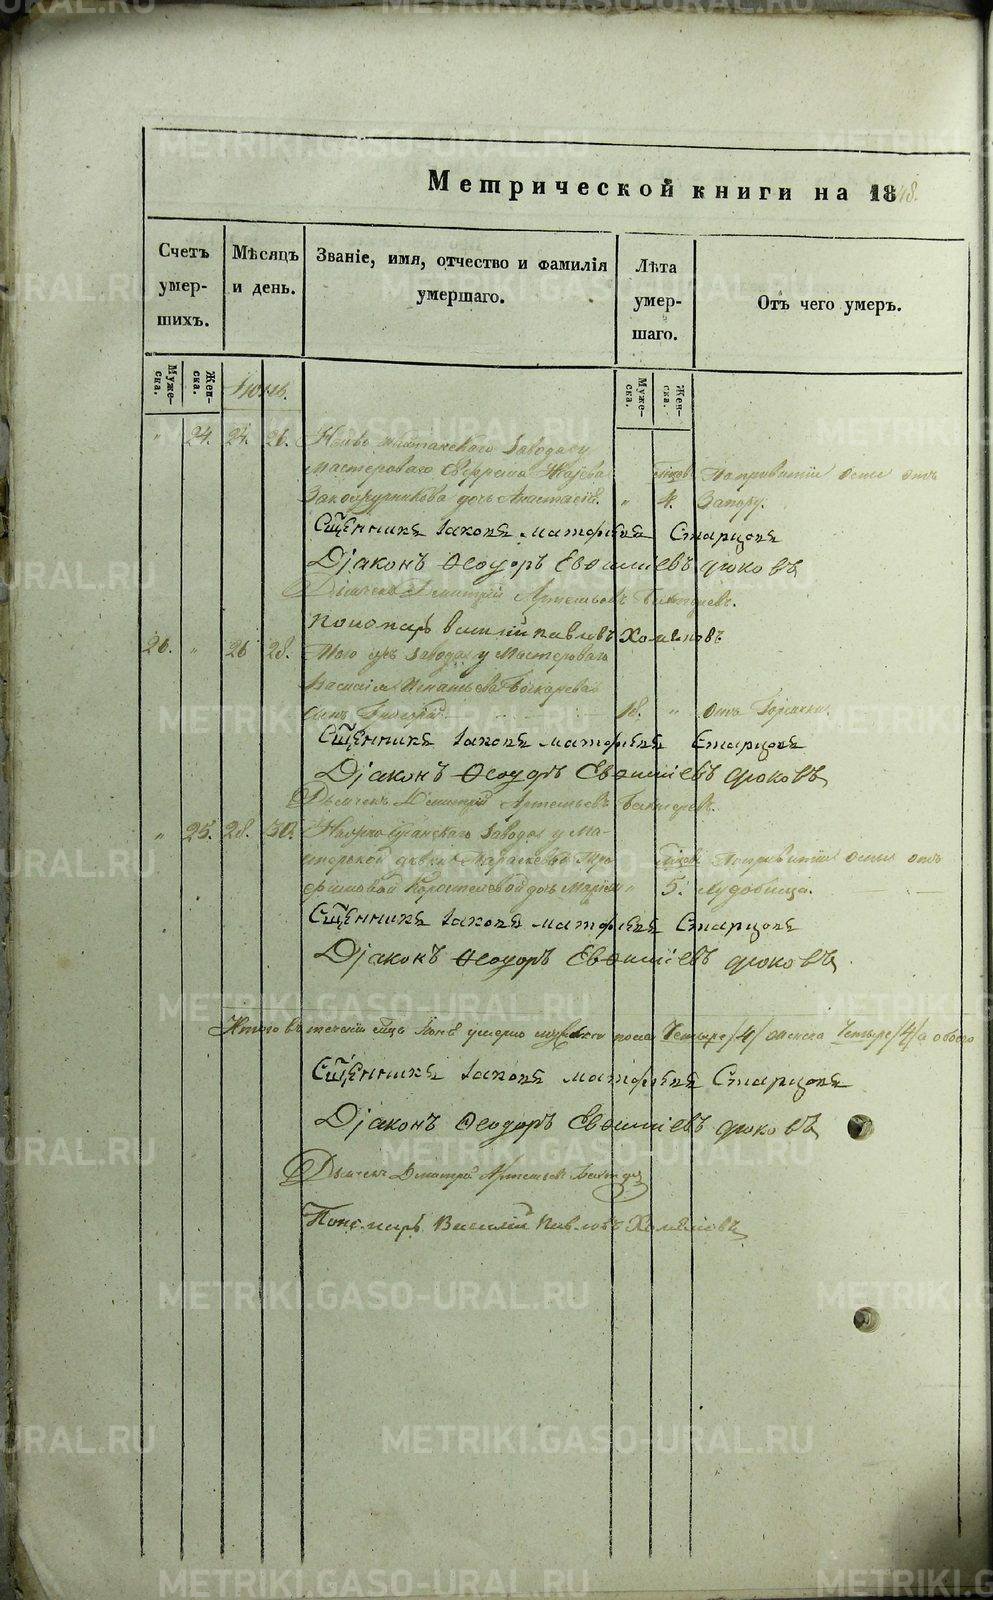 Метрической книги на 1848.
Счетъ умер-шихъ.
Мѣсяцъ и день.
Званіе, имя, отчество и фамилія умершаго.
Лѣта умер-шаго.
Отъ чего умеръ.
Муже-ска.
Жен-ска.
Муже-ска.
Жен-ска.
Іюнь.
" 24. 24. 26. Завода у
Мастероваго
дочь Анастасія. " 4. Запору.
Сщенникъ Іаковъ Матфіевъ Старцовъ
Діаконъ Ѳеодоръ Евѳиміевъ Фоковъ
Дьячекъ Димитрій Артемьевъ
Пономарь Василій Павловъ Хомяковъ
26. " 26 28. Того жъ Завода у Мастероваго
Василія
сынъ Григорій 18. " отъ Горячки.
Сщенникъ Іаковъ Матфіевъ Старцовъ
Діаконъ Ѳеодоръ Евѳиміевъ Фоковъ
Дьячекъ Димитрій Артемьевъ
" 25. 28. 30. Завода у Ма-
стерской дѣвки Параскевы Тро-
фимовой дочь Марія " 5. Худобища.
Сщенникъ Іаковъ Матфіевъ Старцовъ
Діаконъ Ѳеодоръ Евѳиміевъ Фоковъ
Итого въ теченіи Іюнѣ умерло мужеска пола Четыре /4/ а женска Четыре /4/ а обоего
Сщенникъ Іаковъ Матфіевъ Старцовъ
Діаконъ Ѳеодоръ Евѳиміевъ Фоковъ
Дьячекъ Димитрій Артемьевъ
Пономарь Василій Павловъ Хомяковъ
METRIKI.GASO-URAL.RU